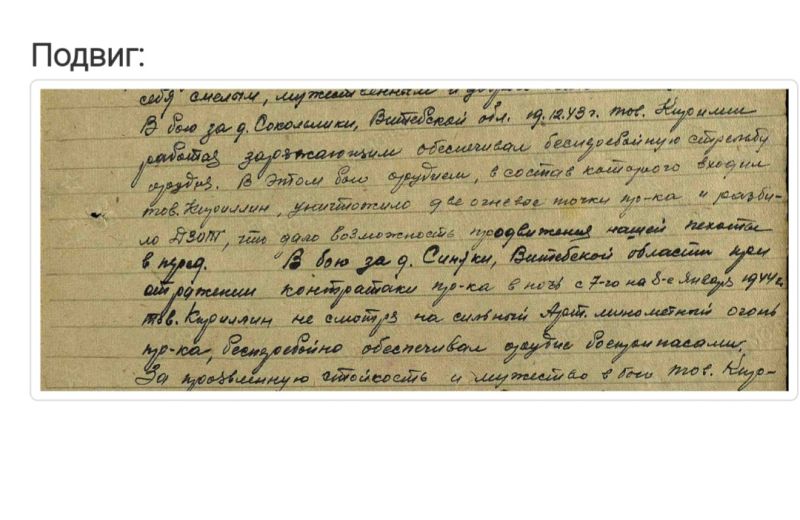 Подвиг:
себя смелым, мужественным и
В бою за д. Сокольники, Витебской обл. 19.12.43 г. тов. Кирилин
работая заряжающим обеспечивал бесперебойную стрельбу
орудия. В этом бою орудием, в состав которого входил
тов. Кириллин, уничтожило две огневое точки пр-ка и разби-
ло ДЗОТ, что дало возможность продвижения нашей пехоты
в перед. В бою за д. Синяки, Витебской области при
отражении контратаки пр-ка в ночь с 7-го на 8-е Январь 1944 г.
тов. Кириллин не смотря на сильный Арт. минометный огонь
пр-ка, бесперебойно обеспечивал орудие боеприпасами.
За проявленную стойкость и мужество в бою тов. Кири-